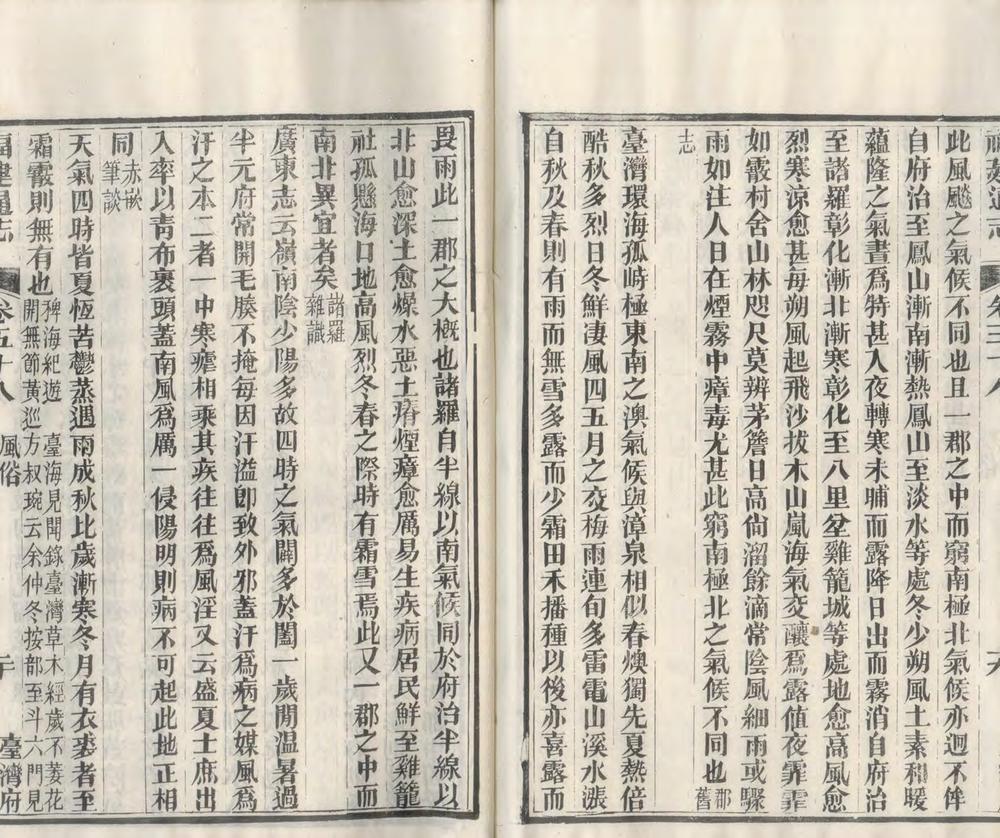 福建通志
卷五十八
此風颷之氣候不同也且一郡之中而窮南極北氣候亦迥不侔
自府治至鳳山漸南漸熱鳳山至淡水等處冬少朔風土素和暖
蘊隆之氣晝爲特甚入夜轉寒未晡而露降日出而霧消自府治
至諸羅彰化漸北漸寒彰化至八里坌雞籠城等處地愈高風愈
烈寒涼愈甚每朔風起飛沙拔木山嵐海氣交釀爲露値夜霏霏
如霰村舍山林咫尺莫辨茅簷日高尙溜餘滴常陰風細雨或驟
雨如注人日在煙霧中瘴毒尤甚此窮南極北之氣候不同也郡舊
志
臺灣環海孤峙極東南之澳氣候與漳泉相似春燠獨先夏熱倍
酷秋多烈日冬鮮凄風四五月之交梅雨連旬多雷電山溪水漲
自秋及春則有雨而無雪多露而少霜田禾播種以後亦喜露而
畏雨此一郡之大槪也諸羅自半線以南氣候同於府治半線以
北山愈深土愈燥水惡土瘠煙瘴愈厲易生疾病居民鮮至雞籠
社孤懸海口地高風烈冬春之際時有霜雪焉此又一郡之中而
南北異宜者矣諸羅雜識
廣東志云嶺南陰少陽多故四時之氣闢多於闔一歲閒温暑過
半元府常開毛腠不掩每因汗溢卽致外邪蓋汗爲病之媒風爲
汗之本二者一中寒瘧相乘其疾往往爲風淫又云盛夏士庶出
入率以靑布裹頭蓋南風爲厲一侵陽明則病不可起此地正相
同赤嵌筆談
天氣四時皆夏恆苦鬱蒸遇雨成秋比歲漸寒冬月有衣裘者至
霜霰則無有也稗海紀遊 臺海見聞錄臺灣草木經歲不萎花開無節黃巡方叔琬云余仲冬按部至斗六門見
福建通志
卷五十八
風俗
臺灣府